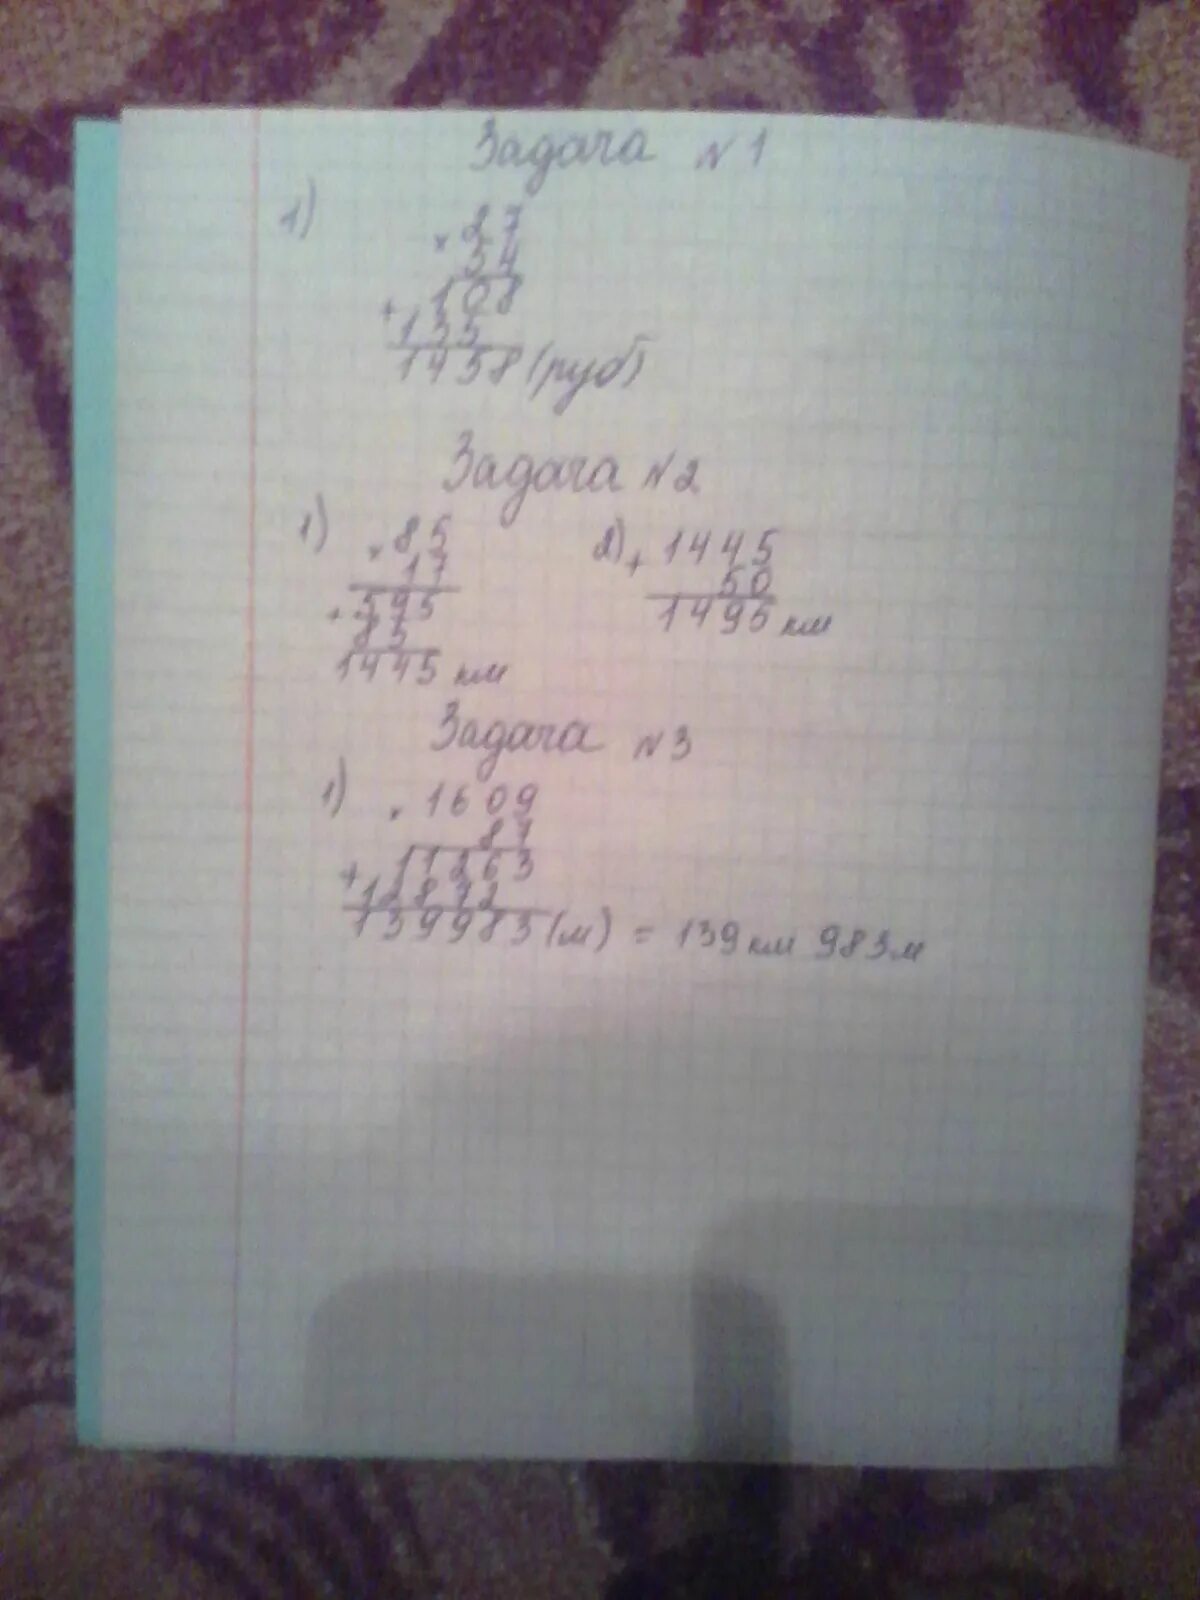 Задача №1
1)
× 27
54
108
+ 135
1458 (руб)
Задача №2
1) × 85
17
595
+ 85
1445 км
2) + 1445
50
1495 км
Задача №3
1) × 1609
87
11263
+ 12872
139983 (м) = 139 км 983 м